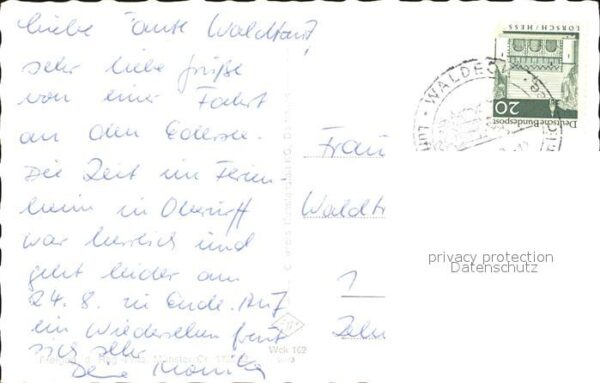 Liebe Tante Waldtraut!
sehr liebe Grüße
von einer Fahrt
an den Edersee.
Die Zeit im Ferien-
heim in Oberurff
war herrlich und
geht leider am
24. 8. zu Ende. Auf
ein Wiedersehen freut
sich sehr
Deine Monika
Frau
Waldtr
1
LORSCH/HESS
20
Deutsche Bundespost
WALDEC
privacy protection
Datenschutz
Wek 162